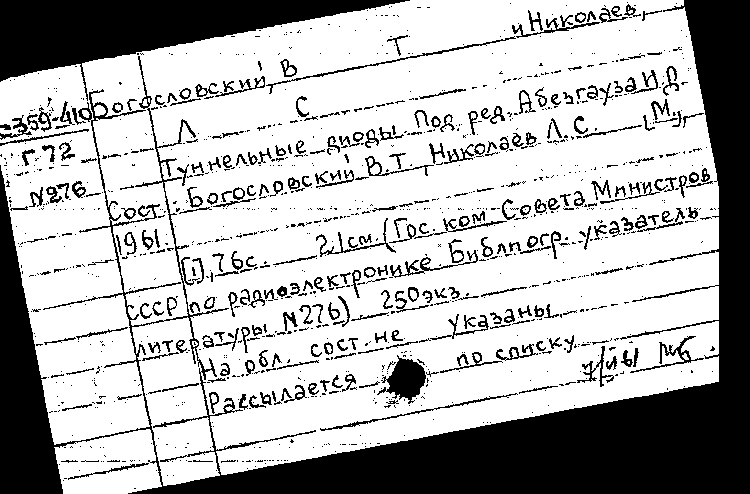 Богословский, В Т и Николаев,
Л С
=359-410
Г 72
N276
Туннельные диоды. Под ред. Абезгауза И.Д.
Сост.: Богословский В.Т., Николаев Л.С. (М.),
1961.
[1], 76с. 21см. (Гос. ком. Совета Министров
СССР по радиоэлектронике Библиогр. указатель
литературы N276) 250экз.
На обл. сост. не указаны
Рассылается по списку